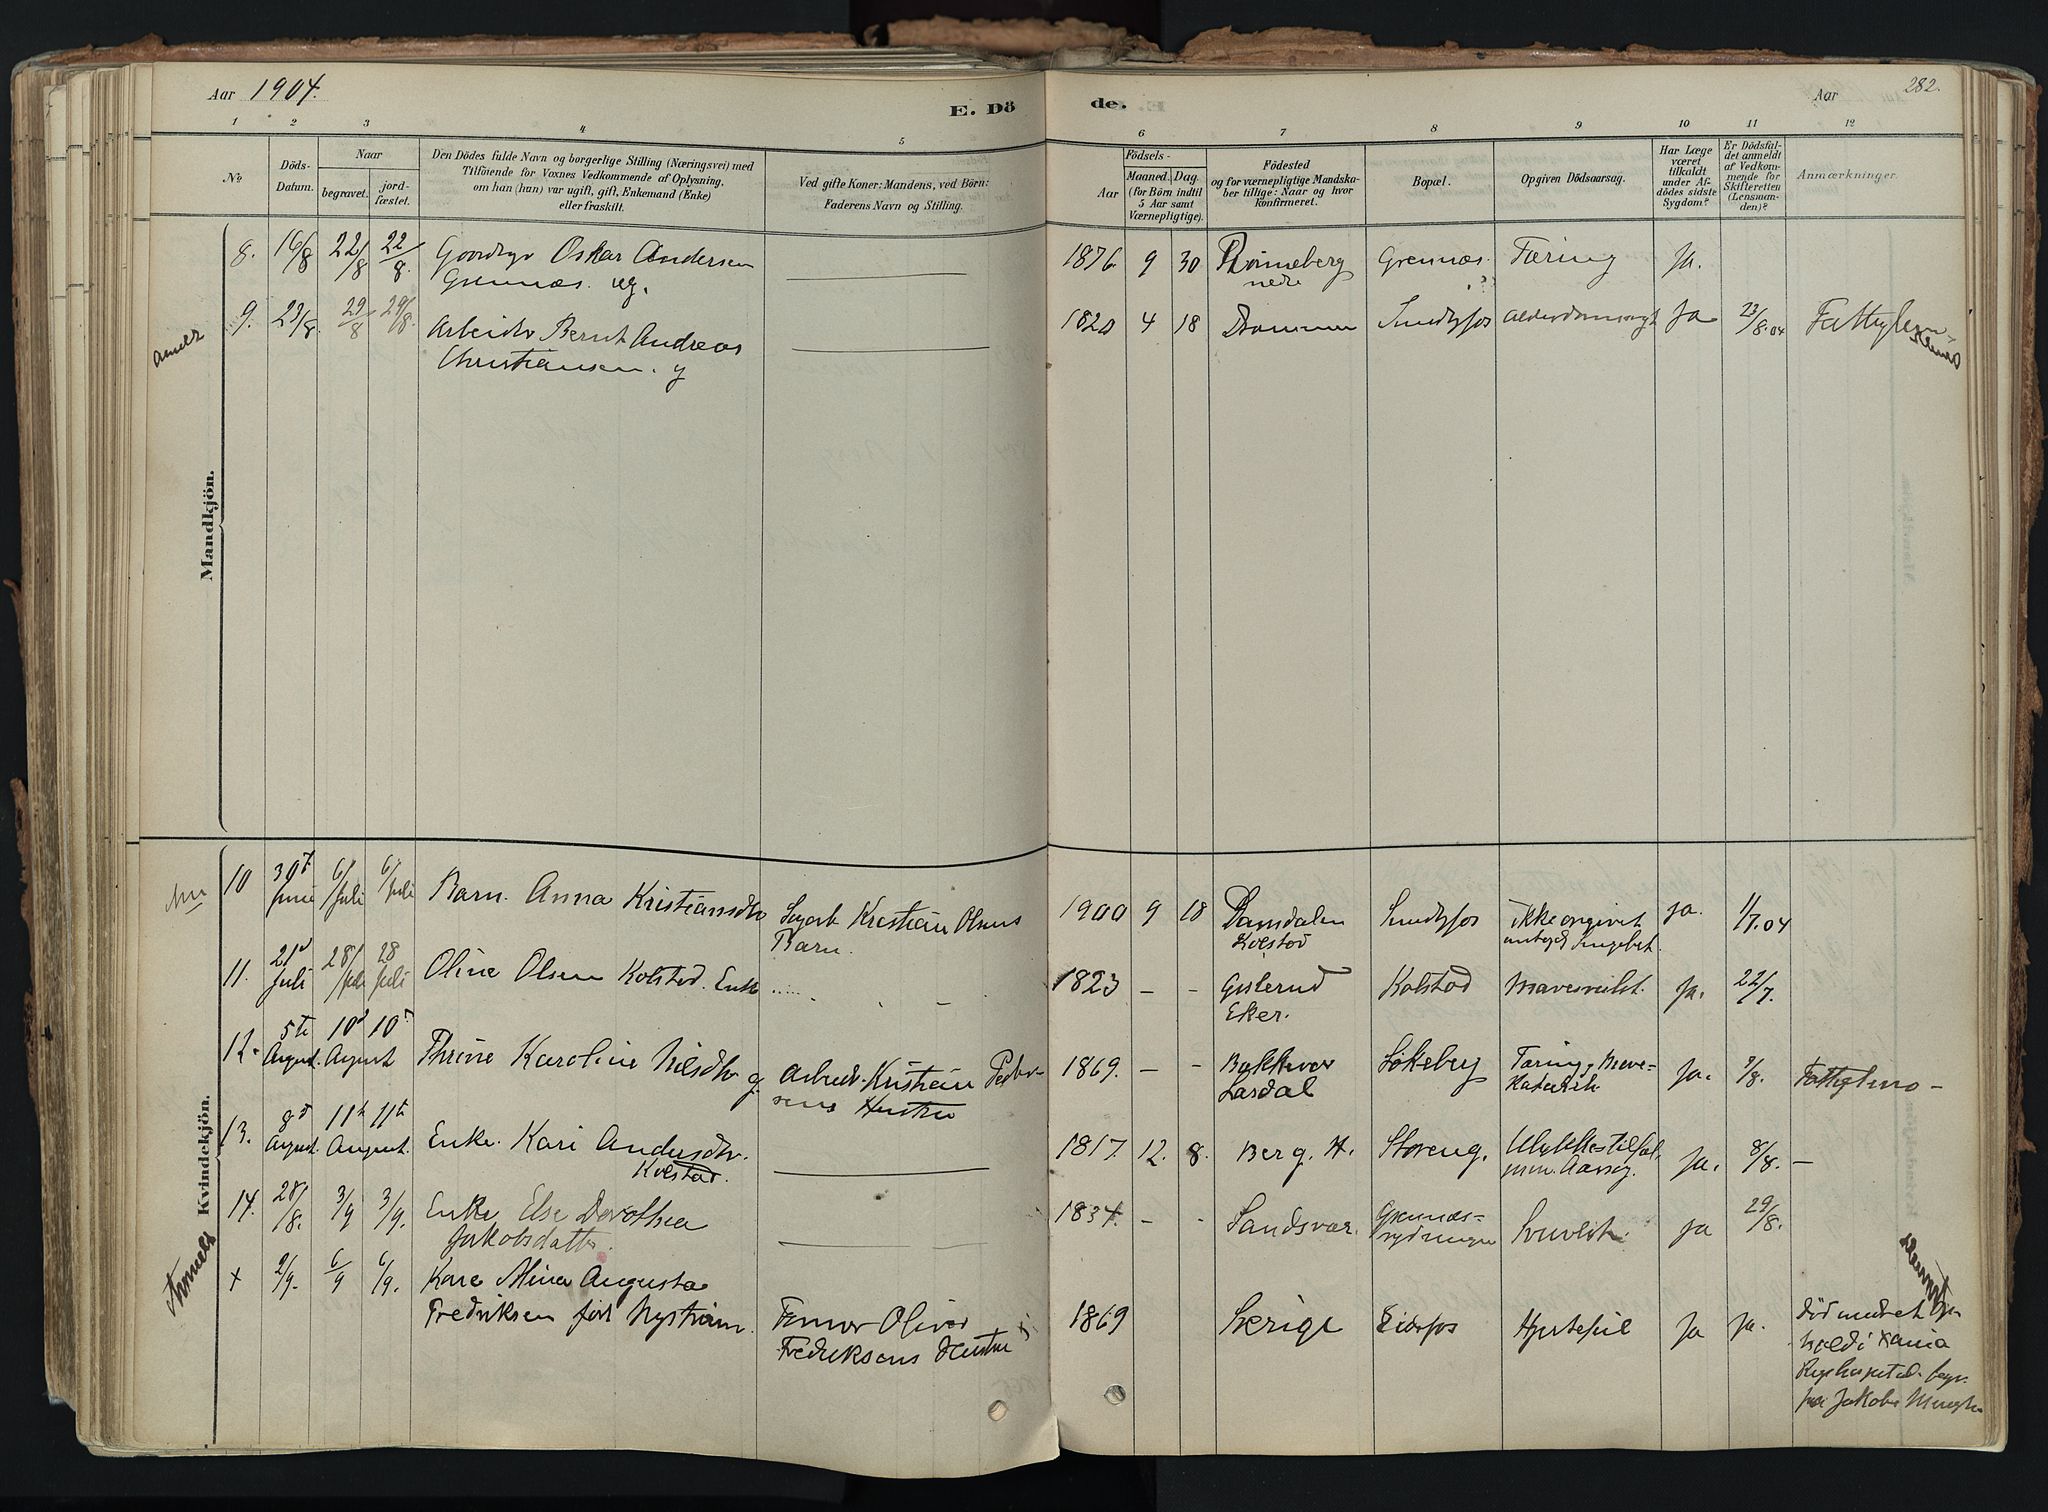 Aar 1904.
E. Dö
de.
Aar
282.
1 2 3 4 5 6 7 8 9 10 11 12
No.
Döds-
Datum.
Naar
begravet.
jord-
fæstet.
Den Dödes fulde Navn og borgerlige Stilling (Næringsvei) med
Tilföiende for Voxnes Vedkommende af Oplysning,
om han (hun) var ugift, gift, Enkemand (Enke)
eller fraskilt.
Ved gifte Koner: Mandens, ved Börn:
Faderens Navn og Stilling.
Födsels-
Aar
Maaned. Dag.
(for Börn indtil
5 Aar samt
Værnepligtige).
Födested
og for værnepligtige Mandska-
ber tillige: Naar og hvor
konfirmeret.
Bopæl.
Opgiven Dödsaarsag.
Har Læge
været
tilkaldt
under Af-
dödes sidste
Sygdom?
Er Dödsfal-
det anmeldt
af Vedkom-
mende for
Skifteretten
(Lensman-
den)?
Anmærkninger.
Mandkjön.
8. 16/8 22/8 22/8. Oskar Andersen
Grennæs. ug.
1876. 9 30
nedre
Grennæs. Tæring Ja.
9. 23/8. 29/8 29/8. Arbeider Bernt Andreas
Christiansen. g
1820 4 18 Drammen Sundbyfos Ja 23/8.04
Kvindekjön.
10 30t Juni 6/Juli 6/Juli Barn. Anna Kristiansdtr
Kristian Olsens
Barn.
1900 9 18 Damdalen
Kolstad
Sundbyfos ikke opgivet
Ja. 1/7.04
11. 21d Juli 28/Juli 28 Juli Oline Olsen Kolstad. Enke
1823 - - Gislerud
Eker.
Kolstad Ja. 22/7.
12. 5te August. 10d August 10d Thrine Karoline Nilsdtr g.
Arbeidr. Kristian Peder-
sens Hustru
1869. - -
Lardal
Tæring, Mave-
Katarrh
Ja. 9/8.
13. 8d August. 11t August 11te August. Enke. Kari Andersdtr.
Kolstad.
1817. 12. 8. Berg. H. Storeng. Ulykkestilfæl,
Ja. 8/8. -
14. 28/8. 3/9 3/9. Enke Else Dorothea
Jakobsdatter.
1834. - - Sandsvær. Grennæs-
rydningen
Ja 29/8.
x 2/9. 6/9 6/9. Kone Mina Augusta
Fredriksen født Nystrøm.
Former Oliver
Fredriksens Hustru
1869 Sverige Eidsfos Hjertefeil Ja Ja.
Død under et Op-
hold i Xania
Rigshospital. begr.
fra Jakobs Menighe